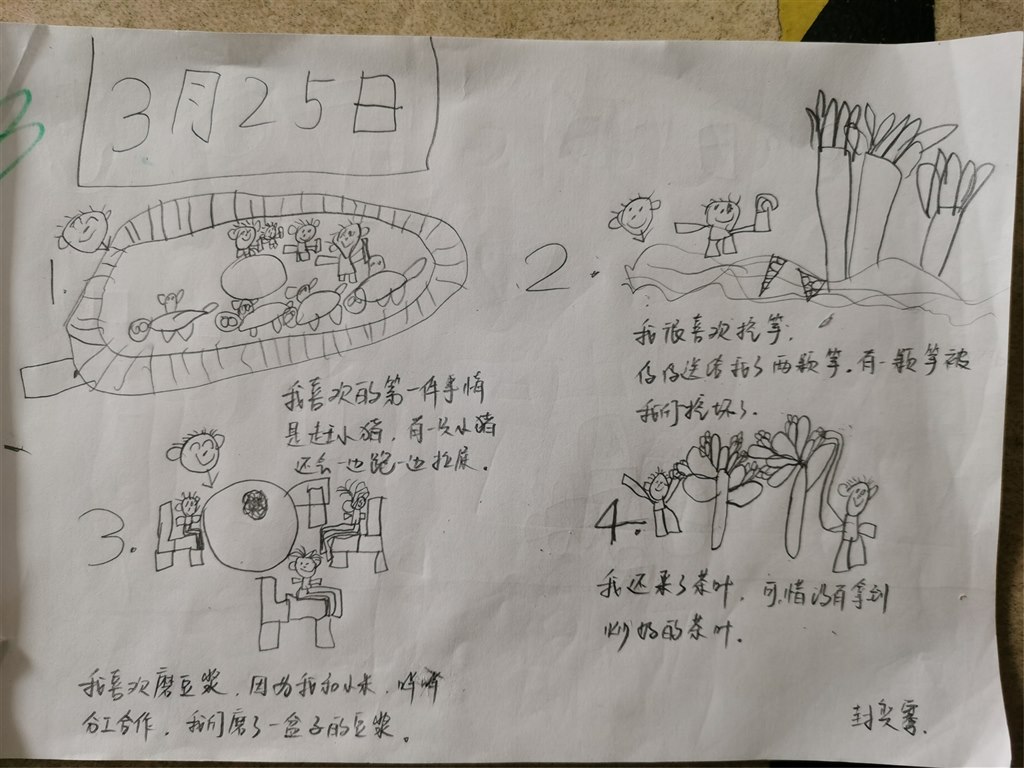 3月25日
1.
我喜欢的第一件事情
是赶小猪，有一只小猪
还会一边跑一边拉屎。
2.
我很喜欢挖笋，
我们挖了两颗笋，有一颗笋被
我们挖坏了。
3.
我喜欢磨豆浆，因为我和小米，
分工合作，我们磨了一盒子的豆浆。
4.
我还采了茶叶，可惜没有拿到
炒好的茶叶。
封奕